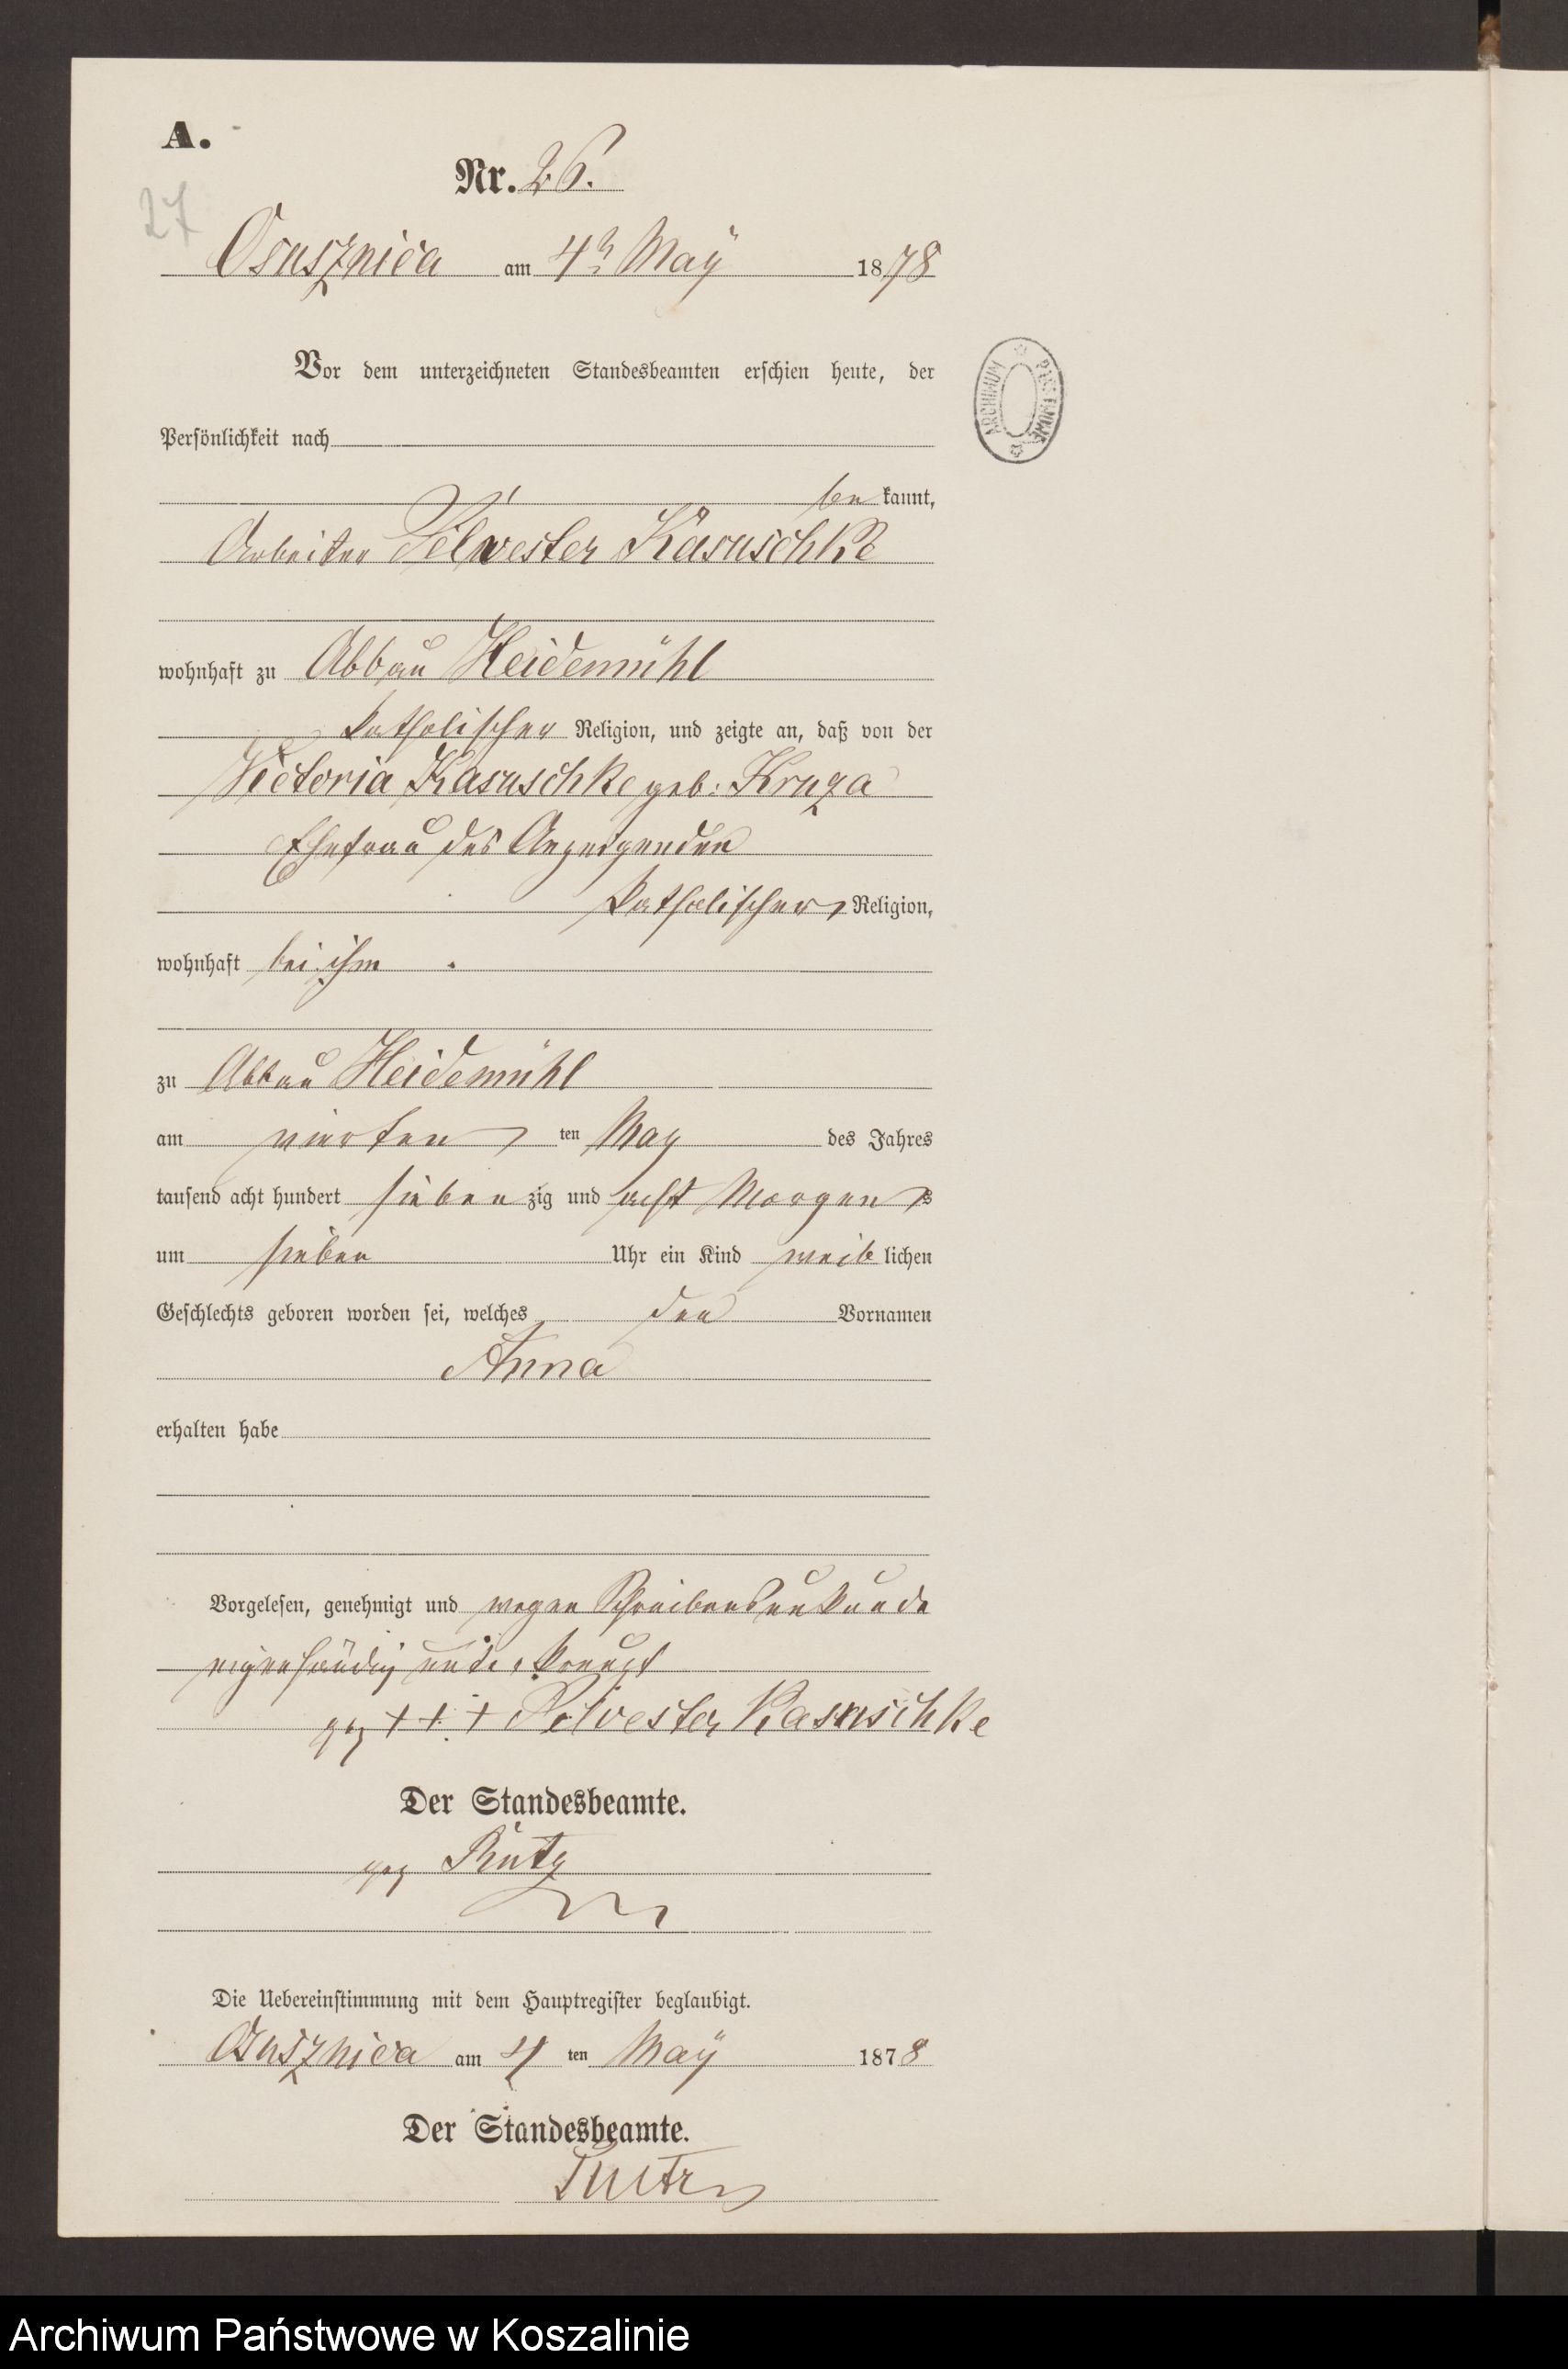 A.
Nr. 26.
27
Osusznica am 4tn Maÿ 1878
Vor dem unterzeichneten Standesbeamten erschien heute, der
Persönlichkeit nach
be kannt,
Arbeiter Silvester Kasuschke
wohnhaft zu Abbau Heidemühl
katholischer Religion, und zeigte an, daß von der
Victoria Kasuschke geb: Kruza
Ehefrau des Anzeigenden
katholischer Religion,
wohnhaft bei ihm
zu Abbau Heidemühl
am vierten ten May des Jahres
tausend acht hundert sieben zig und acht Morgens
um sieben Uhr ein Kind weib lichen
Geschlechts geboren worden sei, welches den Vornamen
Anna
erhalten habe
Vorgelesen, genehmigt und wegen Schreibensunkunde
eigenhändig unterkreuzt
gez + + + Silvester Kasuschke
Der Standesbeamte.
gez
Die Uebereinstimmung mit dem Hauptregister beglaubigt.
Osusznica am 4 ten Maÿ 1878
Der Standesbeamte.
ARCHIWUM PAŃSTWOWE
Archiwum Państwowe w Koszalinie